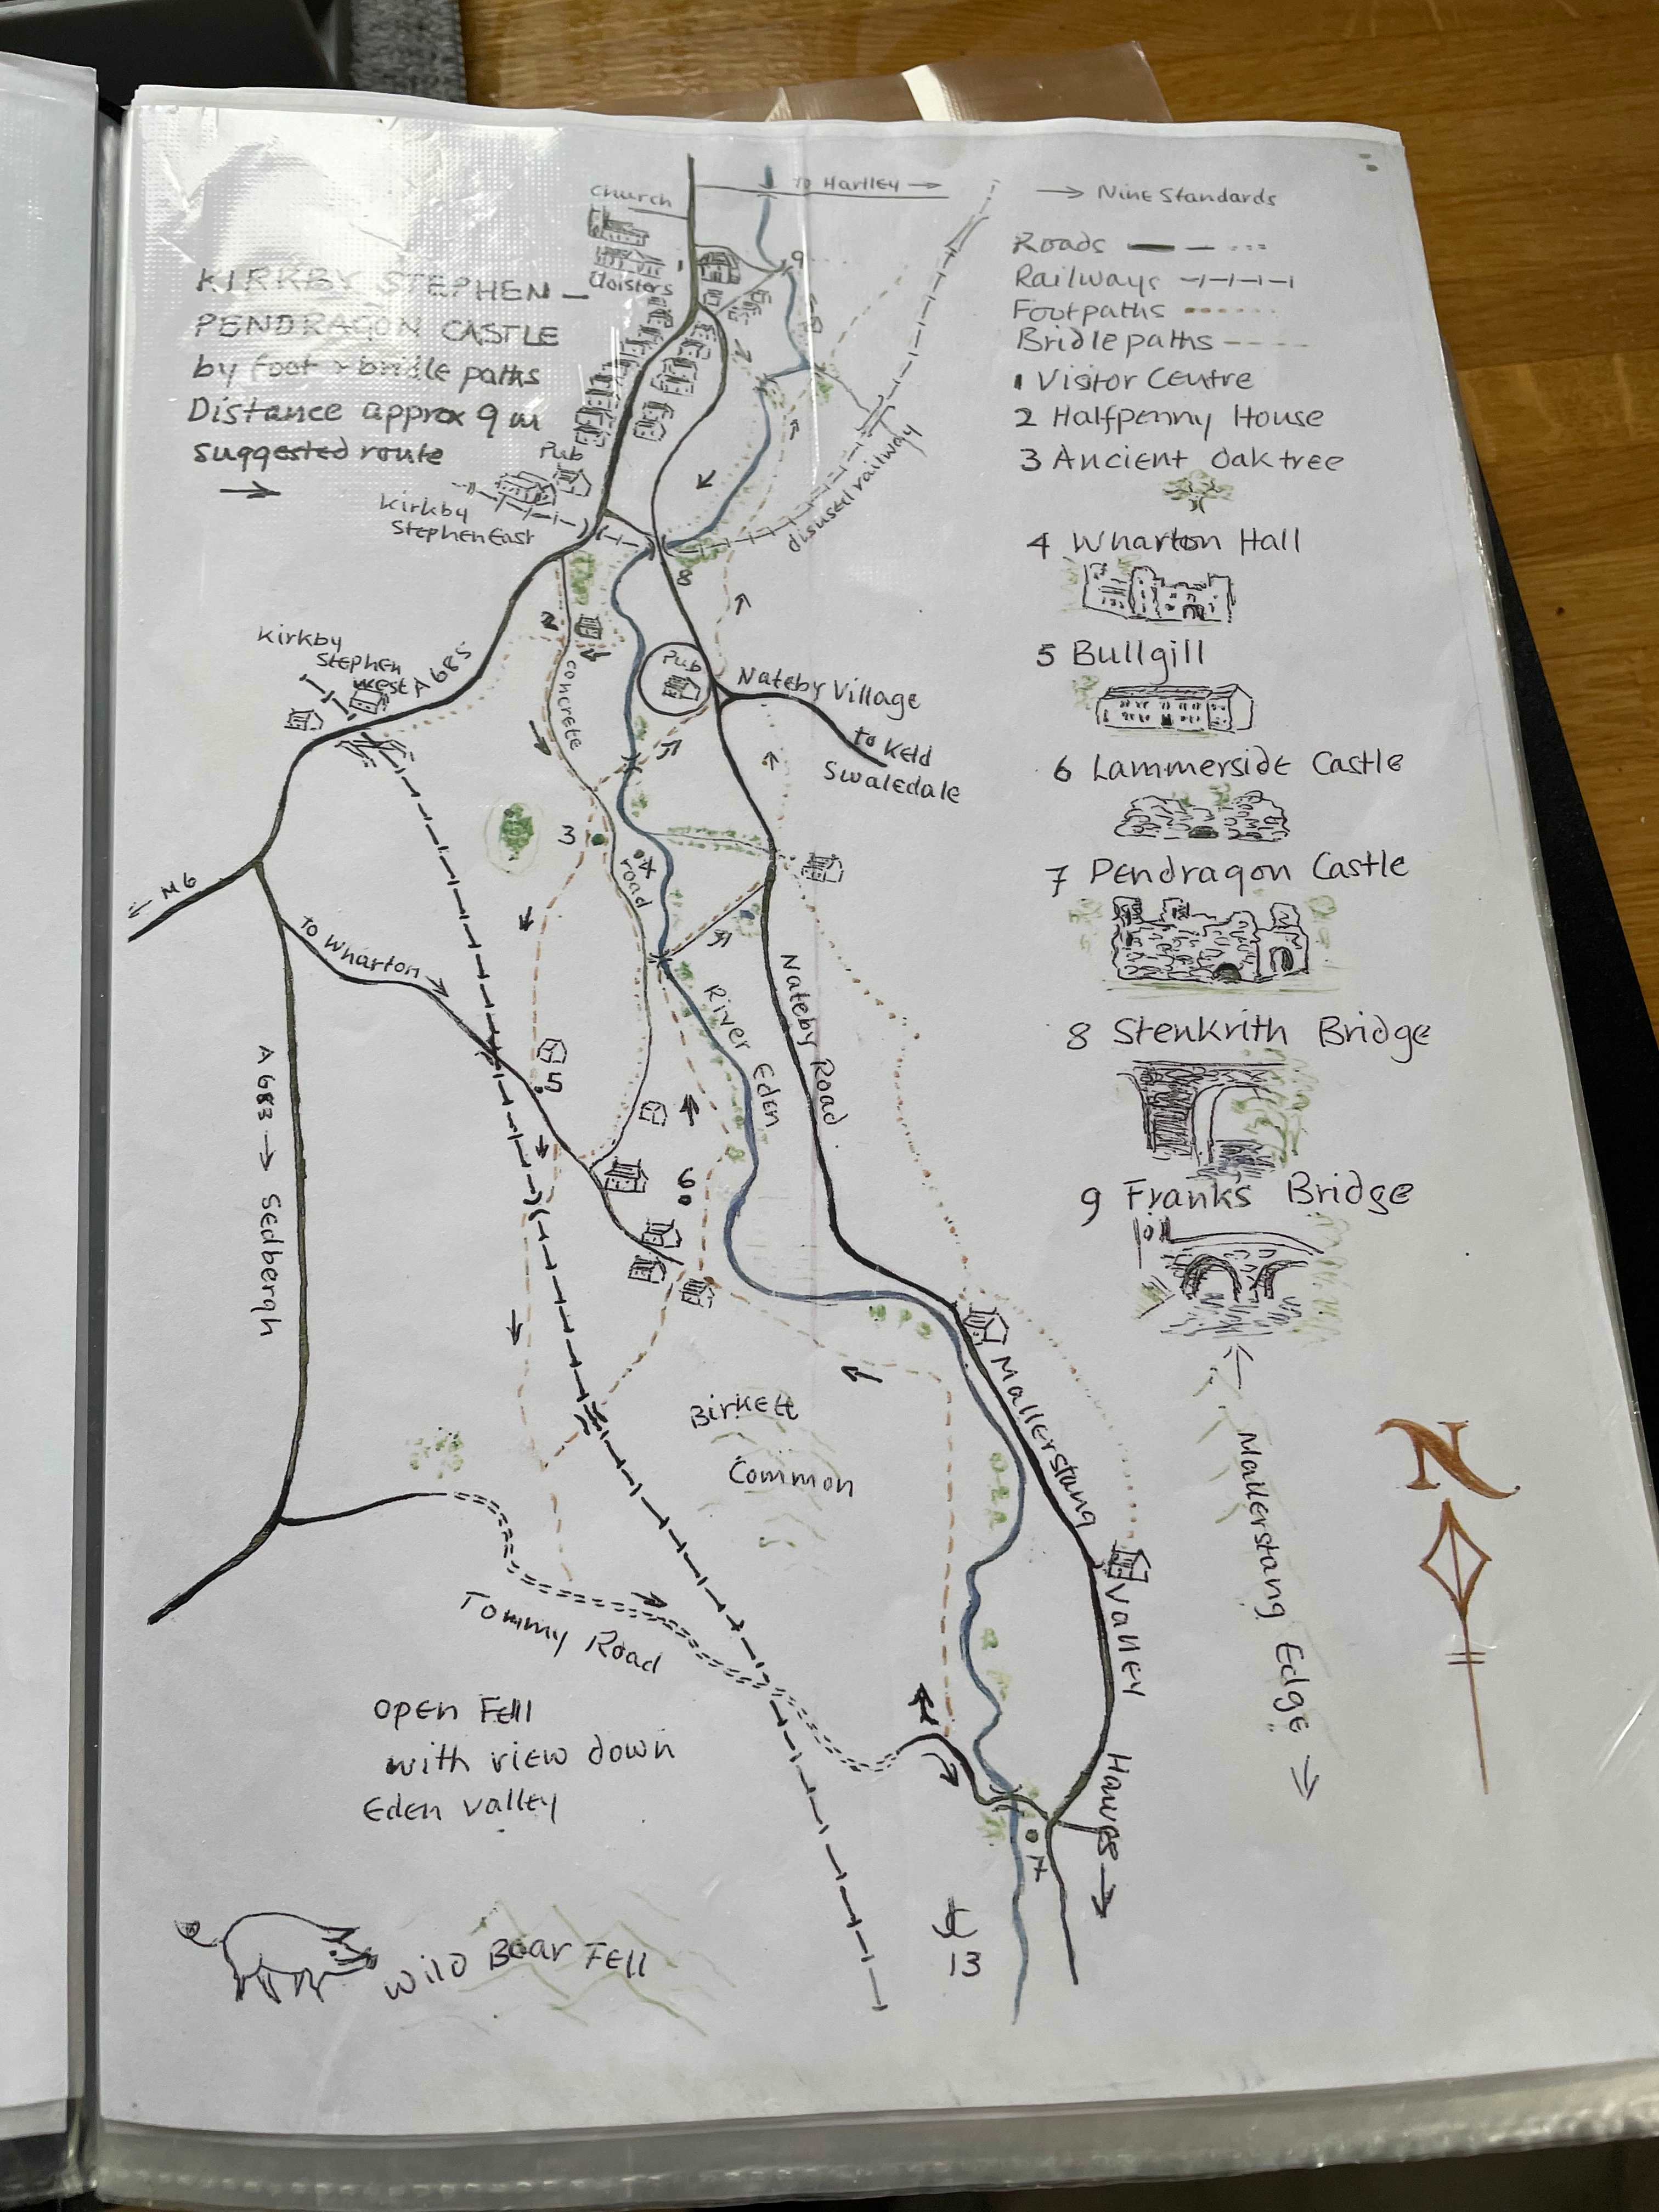 Church
Cloisters
to Hartley →
→ Nine Standards
KIRKBY STEPHEN –
PENDRAGON CASTLE
by foot & bridle paths
Distance approx 9 m
Suggested route
→
Roads
Railways
Footpaths
Bridlepaths
1 Visitor Centre
2 Halfpenny House
3 Ancient Oak tree
4 Wharton Hall
5 Bullgill
6 Lammerside Castle
7 Pendragon Castle
8 Stenkrith Bridge
9 Franks Bridge
1
9
Pub
Kirkby
Stephen East
disused railway
8
2
Kirkby
Stephen
West
A 685
concrete
road
Pub
Nateby Village
to Keld
Swaledale
3
4
← M6
to Wharton →
River Eden
Nateby Road
A 683 → Sedbergh
5
6
Birkett
Common
Mallerstang
Valley
← Mallerstang Edge →
N
Tommy Road
Open Fell
with view down
Eden valley
Hawes →
7
Wild Boar Fell
13